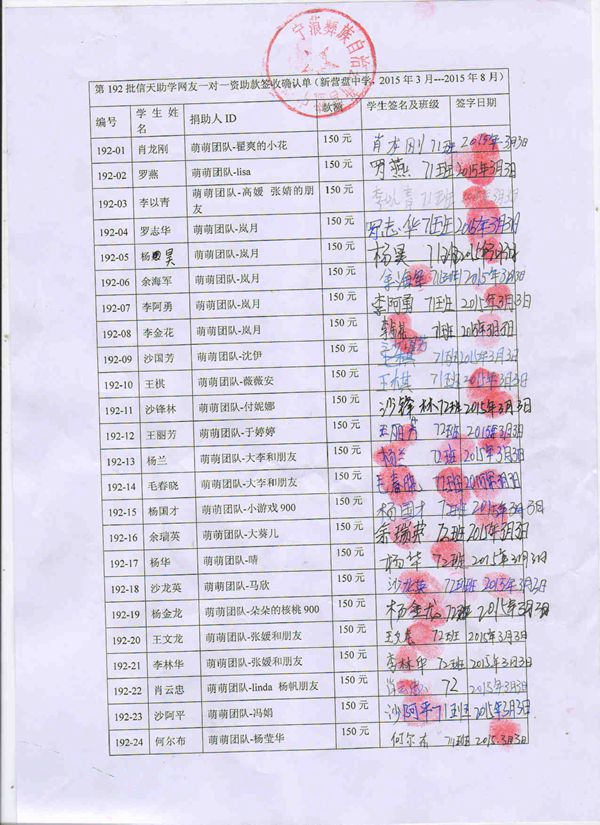 宁蒗彝族自治
第 192 批信天助学网友一对一资助款签收确认单（新营盘中学，2015 年 3 月---2015 年 8 月）
编号 学 生 姓名 捐助人 ID 款额 学生签名及班级 签字日期
192-01 肖龙刚 萌萌团队-翟爽的小花 150 元 肖本刚 71班 2015年3月3日
192-02 罗燕 萌萌团队-lisa 150 元 罗燕 71班 2015年3月3日
192-03 李以青 萌萌团队-高媛 张婧的朋友 150 元 李以青 71班 2015年3月3日
192-04 罗志华 萌萌团队-岚月 150 元 罗志华 71班 2015年3月3日
192-05 杨昊 萌萌团队-岚月 150 元 杨昊 71班 2015年3月3日
192-06 余海军 萌萌团队-岚月 150 元 余海军 71班 2015年3月3日
192-07 李阿勇 萌萌团队-岚月 150 元 李阿勇 71班 2015年3月3日
192-08 李金花 萌萌团队-岚月 150 元 71班 2015年3月3日
192-09 沙国芳 萌萌团队-沈伊 150 元 71班 2015年3月3日
192-10 王棋 萌萌团队-薇薇安 150 元 71班 2015年3月3日
192-11 沙锋林 萌萌团队-付妮娜 150 元 沙锋林 72班 2015年3月3日
192-12 王丽芳 萌萌团队-于婷婷 150 元 王丽芳 72班 2015年3月3日
192-13 杨兰 萌萌团队-大李和朋友 150 元 杨兰 72班 2015年3月3日
192-14 毛春晓 萌萌团队-大李和朋友 150 元 毛春晓 72班 2015年3月3日
192-15 杨国才 萌萌团队-小游戏 900 150 元 杨国才 72班 2015年3月3日
192-16 余瑞英 萌萌团队-大葵儿 150 元 余瑞英 72班 2015年3月3日
192-17 杨华 萌萌团队-晴 150 元 杨华 72班 2015年3月3日
192-18 沙龙英 萌萌团队-马欣 150 元 沙龙英 72班 2015年3月3日
192-19 杨金龙 萌萌团队-朵朵的核桃 900 150 元 杨金龙 72班 2015年3月3日
192-20 王文龙 萌萌团队-张媛和朋友 150 元 王文龙 72班 2015年3月3日
192-21 李林华 萌萌团队-张媛和朋友 150 元 李林华 72班 2015年3月3日
192-22 肖云忠 萌萌团队-linda 杨帆朋友 150 元 肖云忠 72 2015年3月3日
192-23 沙阿平 萌萌团队-冯娟 150 元 沙阿平 71班 2015年3月3日
192-24 何尔布 萌萌团队-杨莹华 150 元 何尔布 71班 2015.3月3日